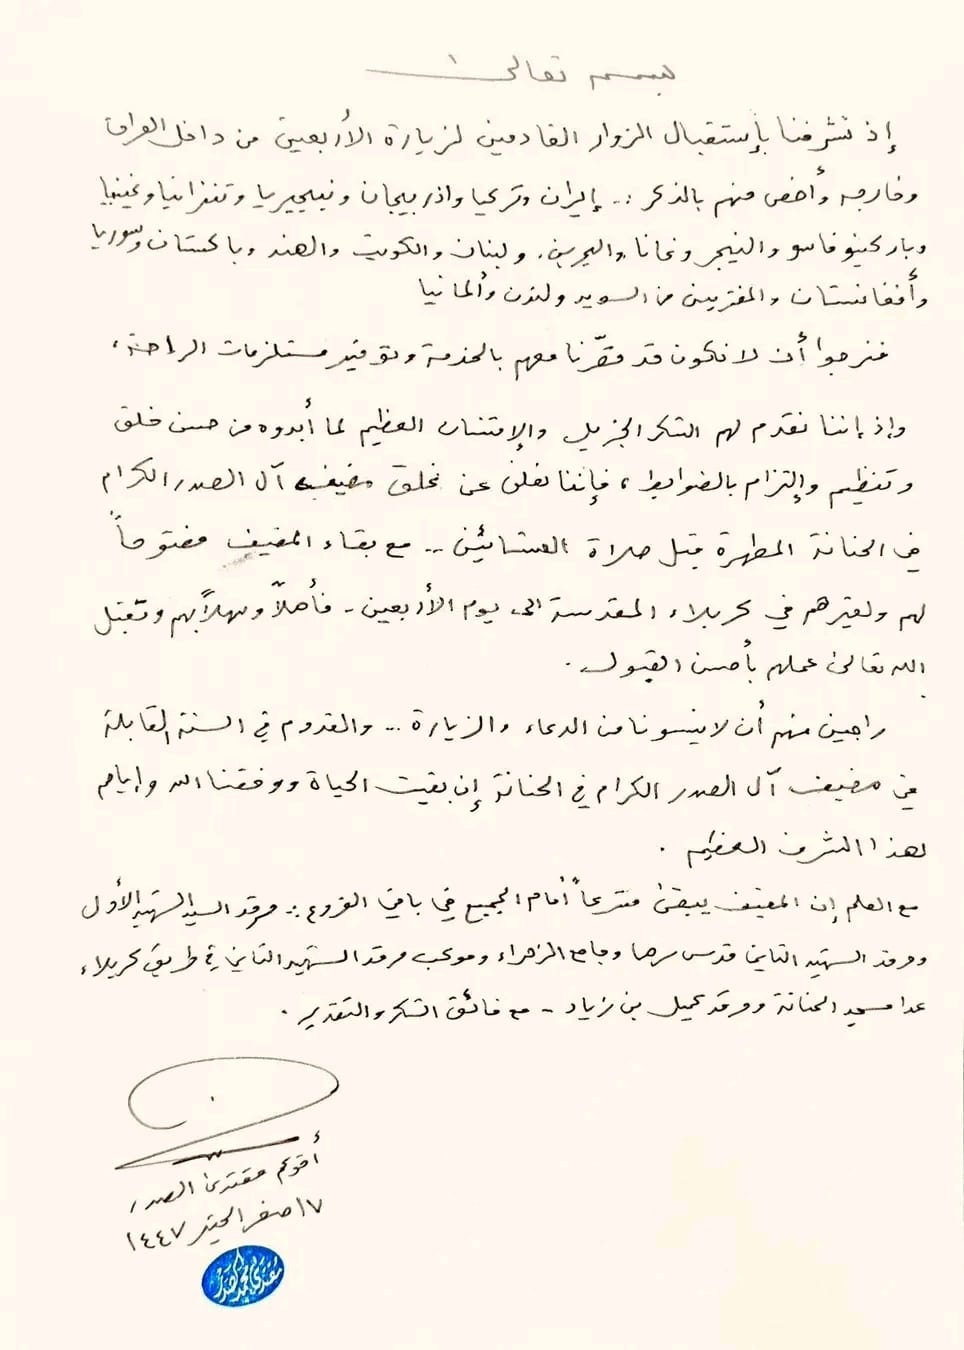 بسمه تعالى
إذ تشرفنا بإستقبال الزوار القادمين لزيارة الأربعين من داخل العراق
وخارجه وأخص منهم بالذكر :.. إيران وتركيا واذربيجان ونيجيريا وتنزانيا وغينيا
وباركينو فاسو والنيجر وغانا والبحرين. ولبنان والكويت والهند وباكستان وسوريا
وأفغانستان والمغتربين من السويد ولندن وألمانيا
فنرجوا أن لا نكون قد قصّرنا معهم بالخدمة وتوفير مستلزمات الراحة،
وإذ إننا نقدم لهم الشكر الجزيل والإمتنان العظيم لما أبدوه من حسن خلق
وتنظيم وإلتزام بالضوابط، فإننا نعلن عن غلق مضيف آل الصدر الكرام
في الحنانة المطهرة قبل صلاة العشائين .. مع بقاء المضيف مفتوحاً
لهم ولغيرهم في كربلاء المقدسة الى يوم الأربعين - فأهلاً وسهلاً بهم وتقبل
الله تعالى عملهم بأحسن القبول.
راجين منهم أن لا ينسونا من الدعاء والزيارة .. والقدوم في السنة القابلة
في مضيف آل الصدر الكرام في الحنانة إن بقيت الحياة ووفقنا الله وإياهم
لهذا الشرف العظيم.
مع العلم إن المضيف يبقى مشرعاً أمام الجميع في باقي الفروع :. مرقد السيد الشهيد الأول
ومرقد الشهيد الثاني قدس سرهما وجامع الزهراء وموكب مرقد الشهيد الثاني في طريق كربلاء
عدا مسجد الحنانة ومرقد كميل بن زياد - مع فائق الشكر والتقدير.
أقولكم مقتدى الصدر
١٧ صفر الخير ١٤٤٧
مقتدى محمد الصدر